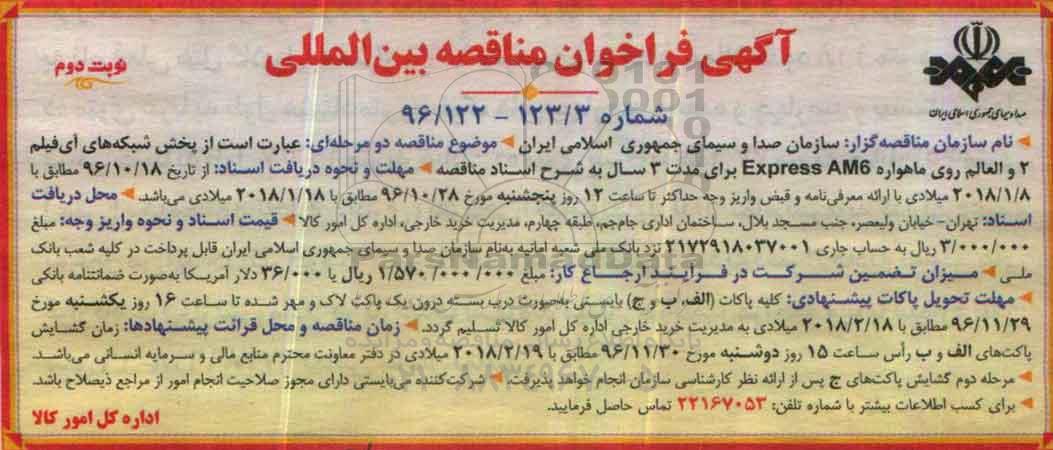 آگهی فراخوان مناقصه بین‌المللی
نوبت دوم
صدا و سیمای جمهوری اسلامی ایران
شماره ۱۲۳/۳ - ۹۶/۱۲۲
نام سازمان مناقصه‌گزار: سازمان صدا و سیمای جمهوری اسلامی ایران موضوع مناقصه دو مرحله‌ای: عبارت است از پخش شبکه‌های آی‌فیلم
۲ و العالم روی ماهواره Express AM6 برای مدت ۳ سال به شرح اسناد مناقصه مهلت و نحوه دریافت اسناد: از تاریخ ۹۶/۱۰/۱۸ مطابق با
۲۰۱۸/۱/۸ میلادی با ارائه معرفی‌نامه و قبض واریز وجه حداکثر تا ساعت ۱۲ روز پنجشنبه مورخ ۹۶/۱۰/۲۸ مطابق با ۲۰۱۸/۱/۱۸ میلادی می‌باشد. محل دریافت
اسناد: تهران- خیابان ولیعصر، جنب مسجد بلال، ساختمان اداری جام‌جم، طبقه چهارم، مدیریت خرید خارجی، اداره کل امور کالا قیمت اسناد و نحوه واریز وجه: مبلغ
۳/۰۰۰/۰۰۰ ریال به حساب جاری ۲۱۷۲۹۱۸۰۳۷۰۰۱ نزد بانک ملی شعبه امانیه به‌نام سازمان صدا و سیمای جمهوری اسلامی ایران قابل پرداخت در کلیه شعب بانک
ملی میزان تضمین شرکت در فرآیند ارجاع کار: مبلغ ۱/۵۷۰/۰۰۰/۰۰۰ ریال یا ۳۶/۰۰۰ دلار آمریکا به‌صورت ضمانتنامه بانکی
مهلت تحویل پاکات پیشنهادی: کلیه پاکات (الف، ب و ج) بایستی به‌صورت درب بسته درون یک پاکت لاک و مهر شده تا ساعت ۱۶ روز یکشنبه مورخ
۹۶/۱۱/۲۹ مطابق با ۲۰۱۸/۲/۱۸ میلادی به مدیریت خرید خارجی اداره کل امور کالا تسلیم گردد. زمان مناقصه و محل قرائت پیشنهادها: زمان گشایش
پاکت‌های الف و ب رأس ساعت ۱۵ روز دوشنبه مورخ ۹۶/۱۱/۳۰ مطابق با ۲۰۱۸/۲/۱۹ میلادی در دفتر معاونت محترم منابع مالی و سرمایه انسانی می‌باشد.
مرحله دوم گشایش پاکت‌های ج پس از ارائه نظر کارشناسی سازمان انجام خواهد پذیرفت. شرکت‌کننده می‌بایستی دارای مجوز صلاحیت انجام امور از مراجع ذیصلاح باشد.
برای کسب اطلاعات بیشتر با شماره تلفن: ۲۲۱۶۷۰۵۳ تماس حاصل فرمایید.
اداره کل امور کالا
ParsNamadData